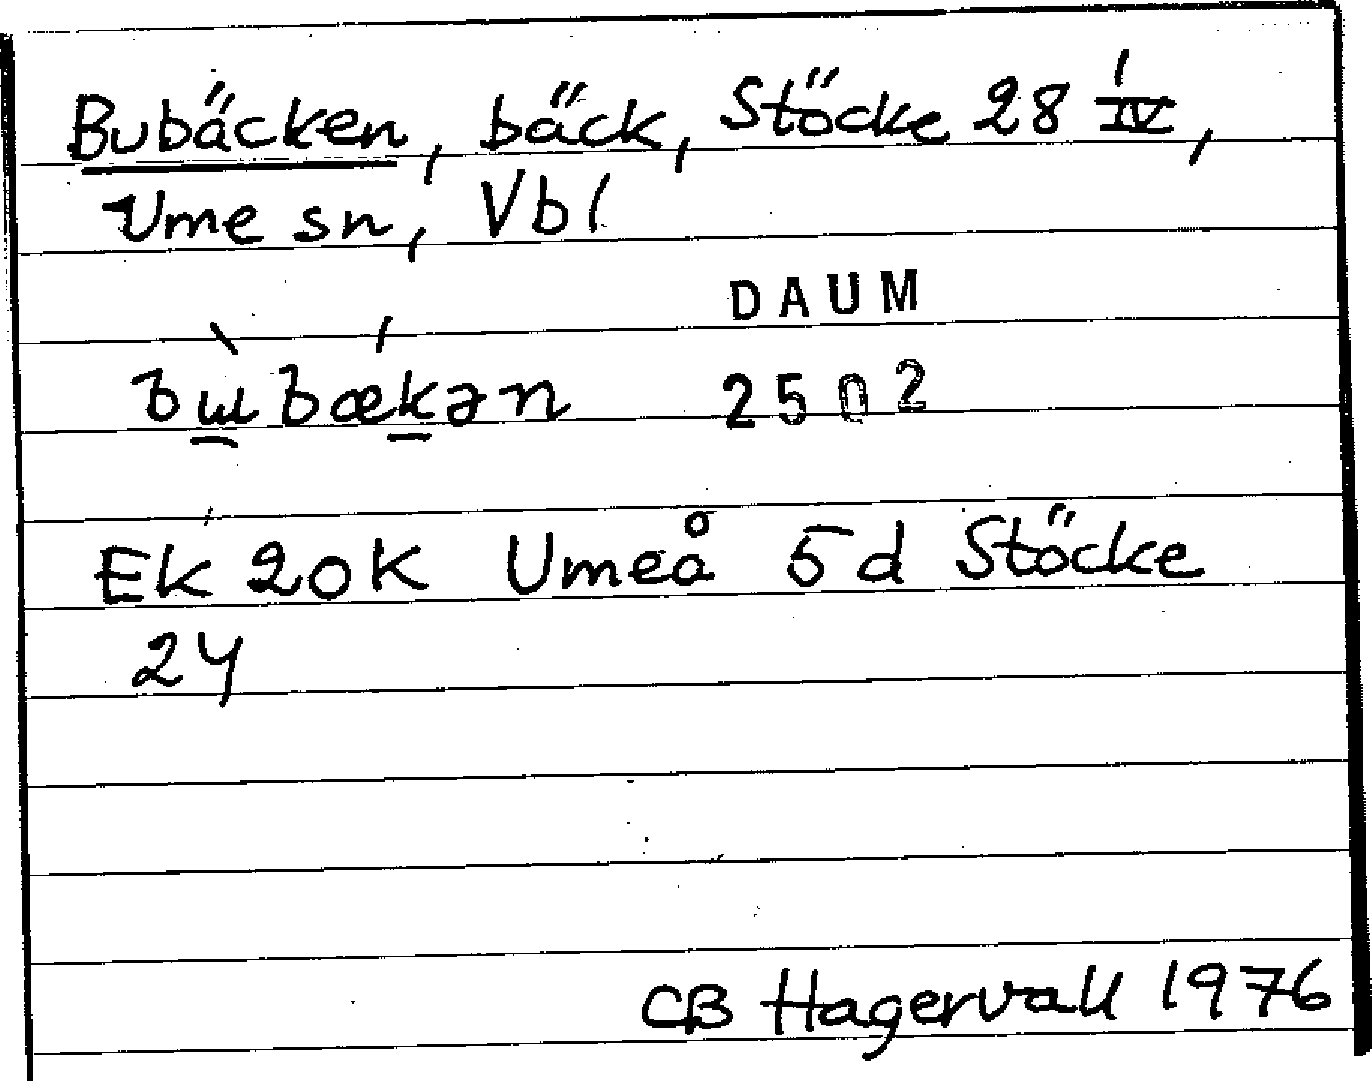 Bubäcken, bäck, Stöcke 28 I/IV,
Ume sn, Vbl
DAUM
bɯ̱̀bæḵ́ən 2502
Ek 20K Umeå 5d Stöcke
24
CB Hagervall 1976